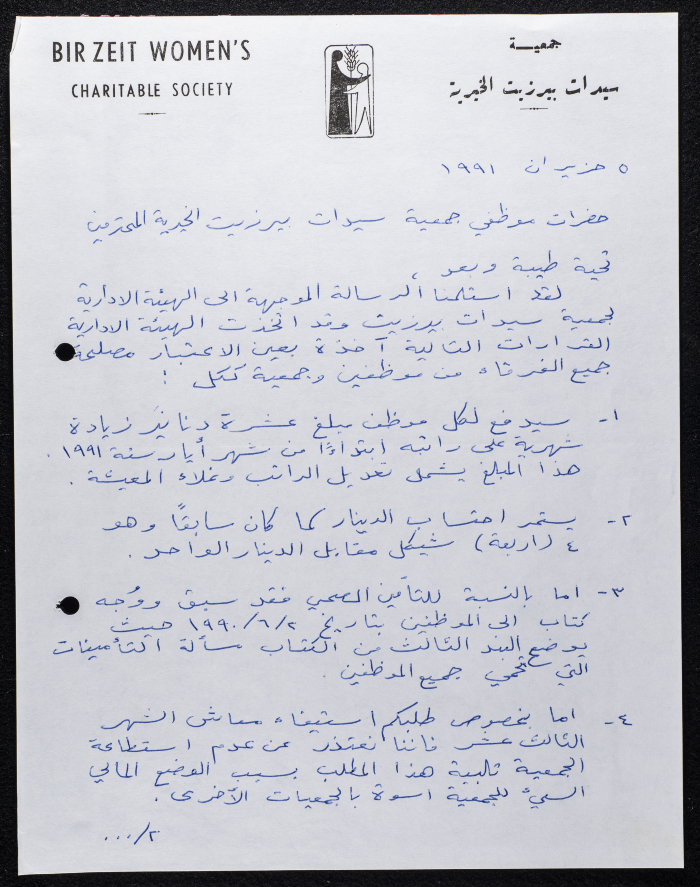 BIR ZEIT WOMEN'S
CHARITABLE SOCIETY
جمعيـــة
سيدات بيرزيت الخيرية
٥ حزيران ١٩٩١
حضرات موظفي جمعية سيدات بيرزيت الخيرية المحترمين
تحية طيبة وبعد ،
لقد استلمنا الرسالة الموجهة الى الهيئة الادارية
لجمعية سيدات بيرزيت وقد اتخذت الهيئة الادارية
القرارات التالية آخذة بعين الاعتبار مصلحة
جميع الفرقاء من موظفين وجمعية ككل :
١- سيدفع لكل موظف مبلغ عشرة دنانير زيادة
شهرية على راتبه ابتداءًا من شهر أيار سنة ١٩٩١ .
هذا المبلغ يشمل تعديل الراتب وغلاء المعيشة .
٢- يستمر احتساب الدينار كما كان سابقًا وهو
٤ (اربعة) شيكل مقابل الدينار الواحد .
٣- اما بالنسبة للتأمين الصحي فقد سبق ووُجه
كتاب الى الموظفين بتاريخ ١٩٩٠/٦/٢ حيث
يوضع البند الثالث من الكتاب مسألة التأمينات
التي تحمي جميع الموظفين .
٤- اما بخصوص طلبكم استيفاء معاش الشهر
الثالث عشر فاننا نعتذر عن عدم استطاعة
الجمعية تلبية هذا المطلب بسبب الوضع المالي
السيئ للجمعية اسوة بالجمعيات الأخرى .
٢/...